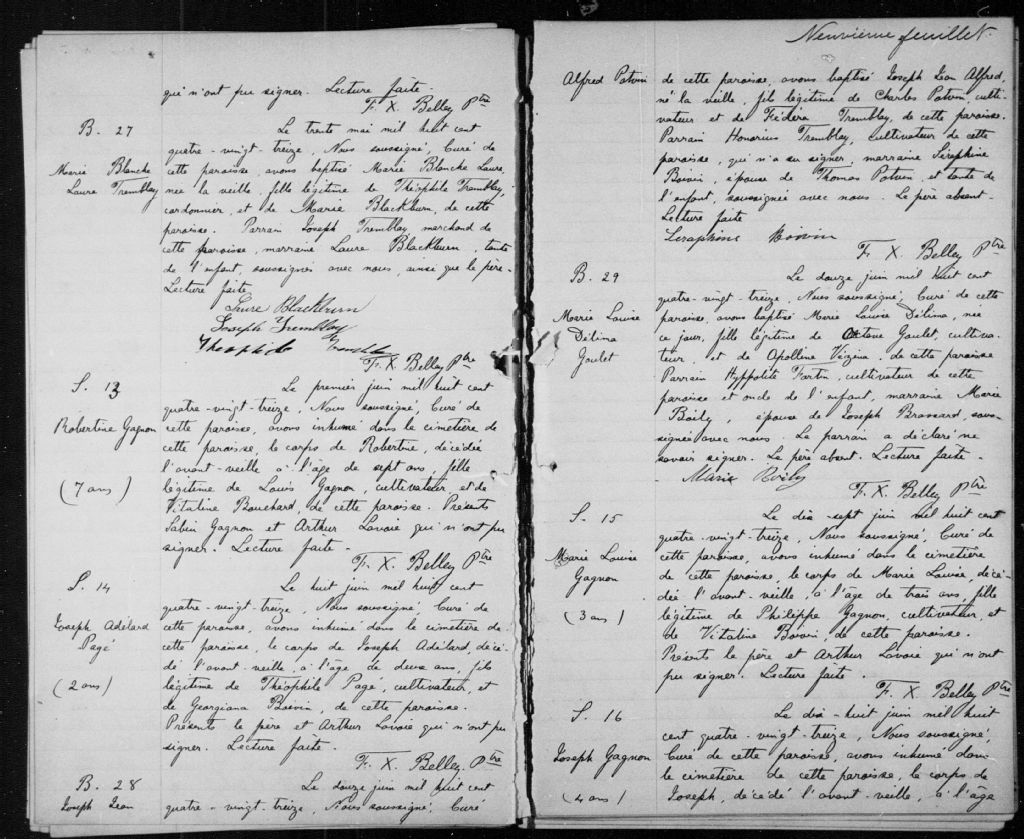 qui n'ont pu signer. Lecture faite.
F. X. Belley Ptre
B. 27
Marie Blanche
Laure Tremblay
Le trente mai mil huit cent
quatre-vingt-treize, Nous soussigné, Curé de
cette paroisse, avons baptisé Marie Blanche Laure,
née la veille, fille légitime de Théophile Tremblay,
cordonnier, et de Marie Blackburn, de cette
paroisse. Parrain Joseph Tremblay marchand de
cette paroisse, marraine Laure Blackburn, tante
de l'enfant, soussignés avec nous, ainsi que le père.
Lecture faite.
Laure Blackburn
Joseph Tremblay
Théophile Tremblay
F. X. Belley Ptre
S. 13
Robertine Gagnon
(7 ans)
Le premier juin mil huit cent
quatre-vingt-treize, Nous soussigné, Curé de
cette paroisse, avons inhumé dans le cimetière de
cette paroisse, le corps de Robertine, décédée
l'avant-veille à l'âge de sept ans, fille
légitime de Louis Gagnon, cultivateur, et de
Vitaline Bouchard, de cette paroisse. Présents
Sabin Gagnon et Arthur Lavoie qui n'ont pu
signer. Lecture faite.-
F. X. Belley Ptre
S. 14
Joseph Adélard
Pagé
(2 ans)
Le huit juin mil huit cent
quatre-vingt-treize, Nous soussigné, Curé de
cette paroisse, avons inhumé dans le cimetière de
cette paroisse, le corps de Joseph Adélard, décé-
dé l'avant-veille, à l'âge de deux ans, fils
légitime de Théophile Pagé, cultivateur, et
de Georgiana Boivin, de cette paroisse.
Présents le père et Arthur Lavoie qui n'ont pu
signer. Lecture faite.
F. X. Belley, Ptre
B. 28
Joseph Léon
Le douze juin mil huit cent
quatre-vingt-treize, Nous soussigné, Curé
Neuvième feuillet.
Alfred Potvin
de cette paroisse, avons baptisé Joseph Léon Alfred,
né la veille, fils légitime de Charles Potvin, culti-
vateur et de Fédora Tremblay, de cette paroisse.
Parrain Honorius Tremblay, cultivateur de cette
paroisse, qui n'a su signer, marraine Séraphine
Boivin, épouse de Thomas Potvin, et tante de
l'enfant, soussignée avec nous. Le père absent.
Lecture faite
Seraphine Boivin
F. X. Belley Ptre
B. 29
Marie Louise
Délima
Goulet
Le douze juin mil huit cent
quatre-vingt-treize, Nous soussigné, Curé de cette
paroisse, avons baptisé Marie Louise Délima, née
ce jour, fille légitime de Octave Goulet, cultiva-
teur, et de Apolline Vézina, de cette paroisse
Parrain Hyppolite Fortin, cultivateur de cette
paroisse et oncle de l'enfant, marraine Marie
Boily, épouse de Joseph Brassard, sous-
signée avec nous. Le parrain a déclaré ne
savoir signer. Le père absent. Lecture faite.-
Marie Boily
F. X. Belley Ptre
S. 15
Marie Louise
Gagnon
(3 ans)
Le dix-sept juin mil huit cent
quatre-vingt-treize, Nous soussigné, Curé de
cette paroisse, avons inhumé dans le cimetière
de cette paroisse, le corps de Marie Louise, décé-
dée l'avant-veille, à l'âge de trois ans, fille
légitime de Philippe Gagnon, cultivateur, et
de Vitaline Boivin, de cette paroisse.
Présents le père et Arthur Lavoie qui n'ont
pu signer. Lecture faite.
F. X. Belley Ptre
S. 16
Joseph Gagnon
(4 ans)
Le dix-huit juin mil huit
cent quatre-vingt-treize, Nous soussigné,
Curé de cette paroisse, avons inhumé dans
le cimetière de cette paroisse, le corps de
Joseph, décédé l'avant-veille, à l'âge